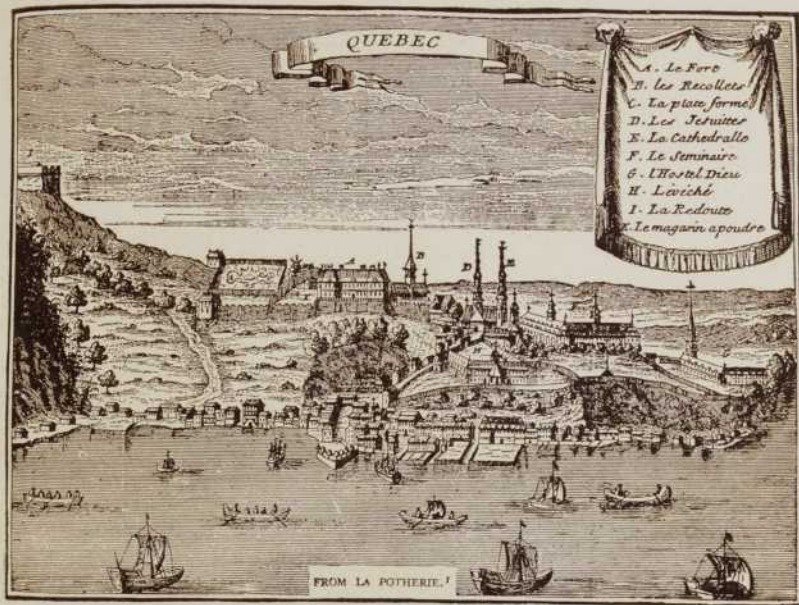 QUEBEC
A. Le Fort
B. les Recollets
C. La plate forme
D. Les Jesuittes
E. La Cathedralle
F. Le Seminaire
G. l'Hostel Dieu
H. Lévéché
I. La Redoute
K. Le magasin a poudre
I
A
B
D
E
H
G
FROM LA POTHERIE.¹